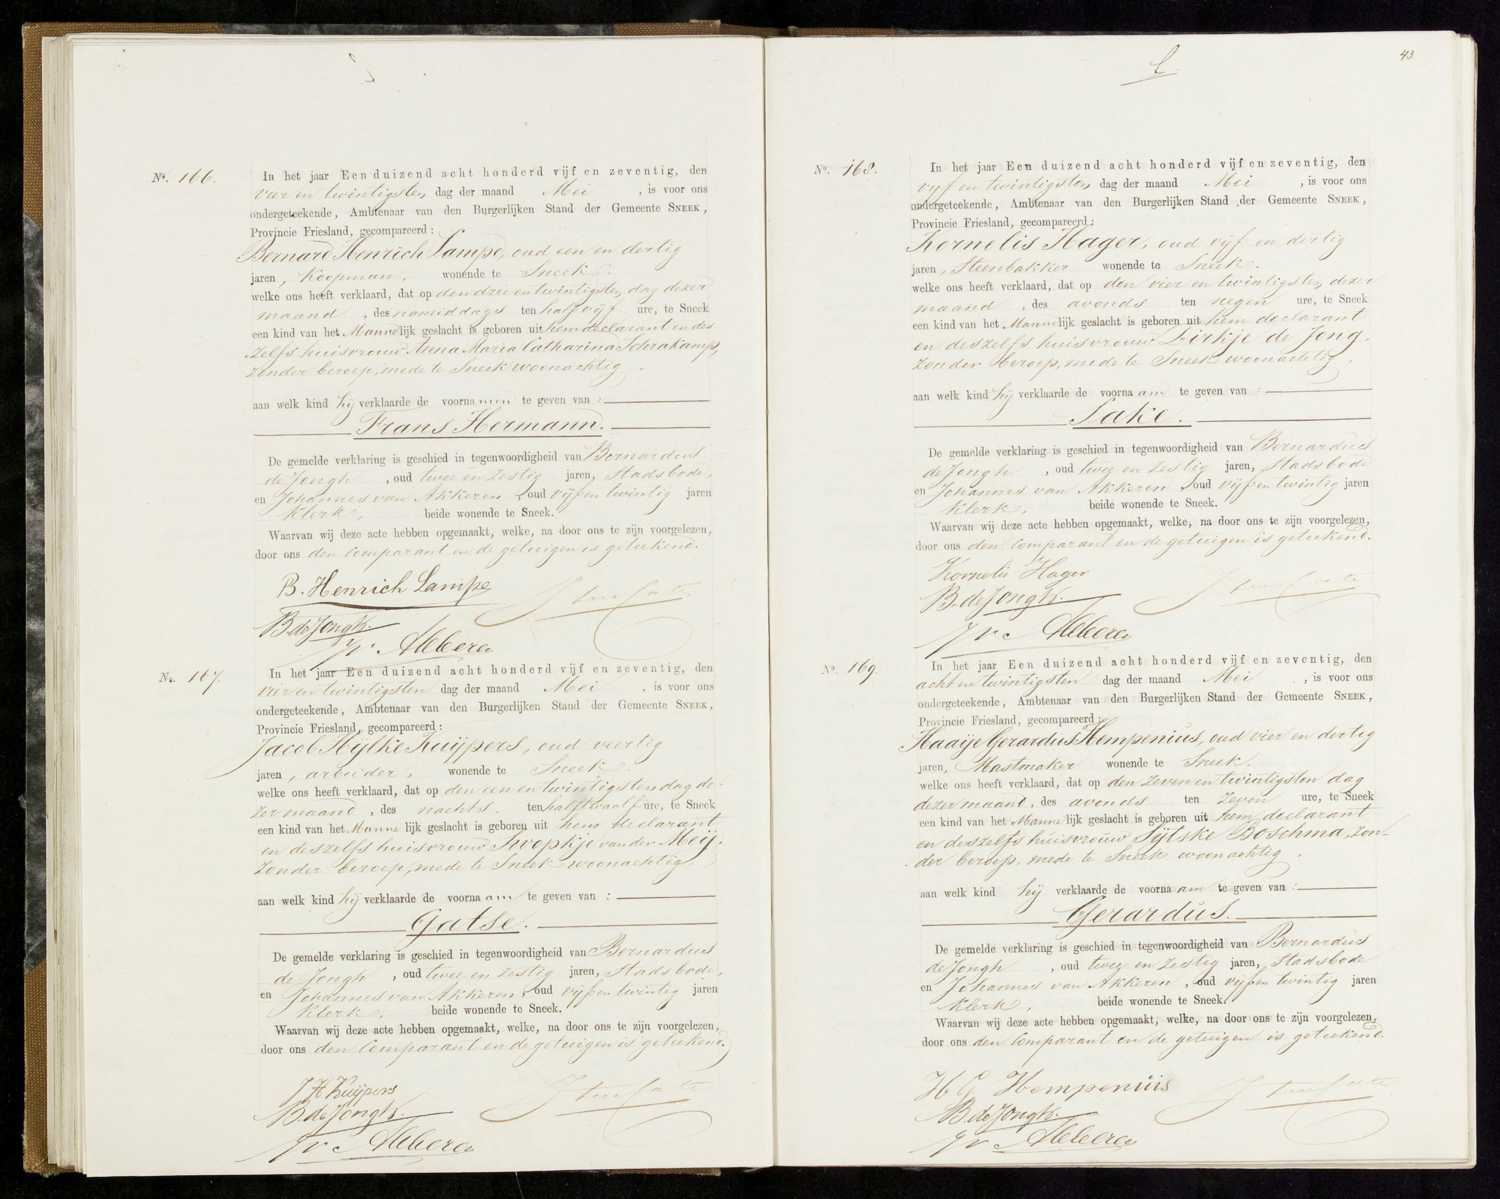 No. 166.
In het jaar Een duizend acht honderd vijf en zeventig, den
vier en twintigsten dag der maand Mei , is voor ons
ondergeteekende, Ambtenaar van den Burgerlijken Stand der Gemeente SNEEK,
Provincie Friesland, gecompareerd:
Bernard Henrich Lampe, oud een en dertig
jaren, Koopman, wonende te Sneek.
welke ons heeft verklaard, dat op den drie en twintigsten dag dezer
maand , des namiddags ten half vijf ure, te Sneek
een kind van het Mannelijk geslacht is geboren uit hem declarant en des
zelfs huisvrouw Anna Maria Catharina Schrakamp,
zonder beroep, mede te Sneek woonachtig.
aan welk kind hij verklaarde de voornamen te geven van:
Frans Hermann.
De gemelde verklaring is geschied in tegenwoordigheid van Bernardus
de Jongh , oud twee en zestig jaren, Stadsbode,
en Johannes van Akkeren, oud vijf en twintig jaren
Klerk, beide wonende te Sneek.
Waarvan wij deze acte hebben opgemaakt, welke, na door ons te zijn voorgelezen,
door ons den Comparant en de getuigen is geteekend.
B. Henrich Lampe
B. de Jongh.
J v Akkeren
No. 167.
In het jaar Een duizend acht honderd vijf en zeventig, den
vier en twintigsten dag der maand Mei , is voor ons
ondergeteekende, Ambtenaar van den Burgerlijken Stand der Gemeente SNEEK,
Provincie Friesland, gecompareerd:
Jacob Hylke Kuijpers, oud veertig
jaren, arbeider, wonende te Sneek.
welke ons heeft verklaard, dat op den een en twintigsten dag de-
zer maand , des nachts ten half twaalf ure, te Sneek
een kind van het Mannelijk geslacht is geboren uit hem declarant
en deszelfs huisvrouw Kwopkje van der Meij.
zonder beroep, mede te Sneek woonachtig.
aan welk kind hij verklaarde de voornaam te geven van:
Gatse.
De gemelde verklaring is geschied in tegenwoordigheid van Bernardus
de Jongh , oud twee en zestig jaren, Stadsbode,
en Johannes van Akkeren, oud vijf en twintig jaren
Klerk, beide wonende te Sneek.
Waarvan wij deze acte hebben opgemaakt, welke, na door ons te zijn voorgelezen,
door ons den Comparant en de getuigen is geteekend.
J H Kuijpers
B. de Jongh.
J v Akkeren
43
No. 168.
In het jaar Een duizend acht honderd vijf en zeventig, den
vijf en twintigsten dag der maand Mei , is voor ons
ondergeteekende, Ambtenaar van den Burgerlijken Stand der Gemeente SNEEK,
Provincie Friesland, gecompareerd:
Kornelis Hager, oud vijf en dertig
jaren, Steenbakker wonende te Sneek.
welke ons heeft verklaard, dat op den vier en twintigsten dezer
maand , des avonds ten negen ure, te Sneek
een kind van het Mannelijk geslacht is geboren uit hem declarant
en deszelfs huisvrouw Dirkje de Jong.
zonder beroep, mede te Sneek woonachtig.
aan welk kind hij verklaarde de voornaam te geven van:
Sake.
De gemelde verklaring is geschied in tegenwoordigheid van Bernardus
de Jongh , oud twee en zestig jaren, Stadsbode
en Johannes van Akkeren, oud vijf en twintig jaren
Klerk, beide wonende te Sneek.
Waarvan wij deze acte hebben opgemaakt, welke, na door ons te zijn voorgelezen,
door ons den Comparant en de getuigen is geteekend.
Kornelis Hager
B. de Jongh.
J v Akkeren
No. 169.
In het jaar Een duizend acht honderd vijf en zeventig, den
acht en twintigsten dag der maand Mei , is voor ons
ondergeteekende, Ambtenaar van den Burgerlijken Stand der Gemeente SNEEK,
Provincie Friesland, gecompareerd:
Haaije Gerardus Hempenius, oud vier en dertig
jaren, Mastmaker wonende te Sneek.
welke ons heeft verklaard, dat op den zeven en twintigsten dag
dezer maand, des avonds ten zeven ure, te Sneek
een kind van het Mannelijk geslacht is geboren uit hem declarant
en deszelfs huisvrouw Sijtske Boschma, zon-
der beroep, mede te Sneek woonachtig.
aan welk kind hij verklaarde de voornaam te geven van:
Gerardus.
De gemelde verklaring is geschied in tegenwoordigheid van Bernardus
de Jongh , oud twee en zestig jaren, Stadsbode
en Johannes van Akkeren, oud vijf en twintig jaren
Klerk, beide wonende te Sneek.
Waarvan wij deze acte hebben opgemaakt, welke, na door ons te zijn voorgelezen,
door ons den Comparant en de getuigen is geteekend.
H G Hempenius
B. de Jongh.
J v Akkeren